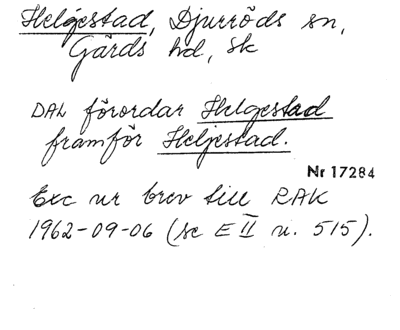 Helgestad, Djurröds sn,
Gärds hd, Sk
DAL förordar Helgestad
framför Heljestad.
Nr 17284
Exc ur brev till RAK
1962-09-06 (se E II u. 515).